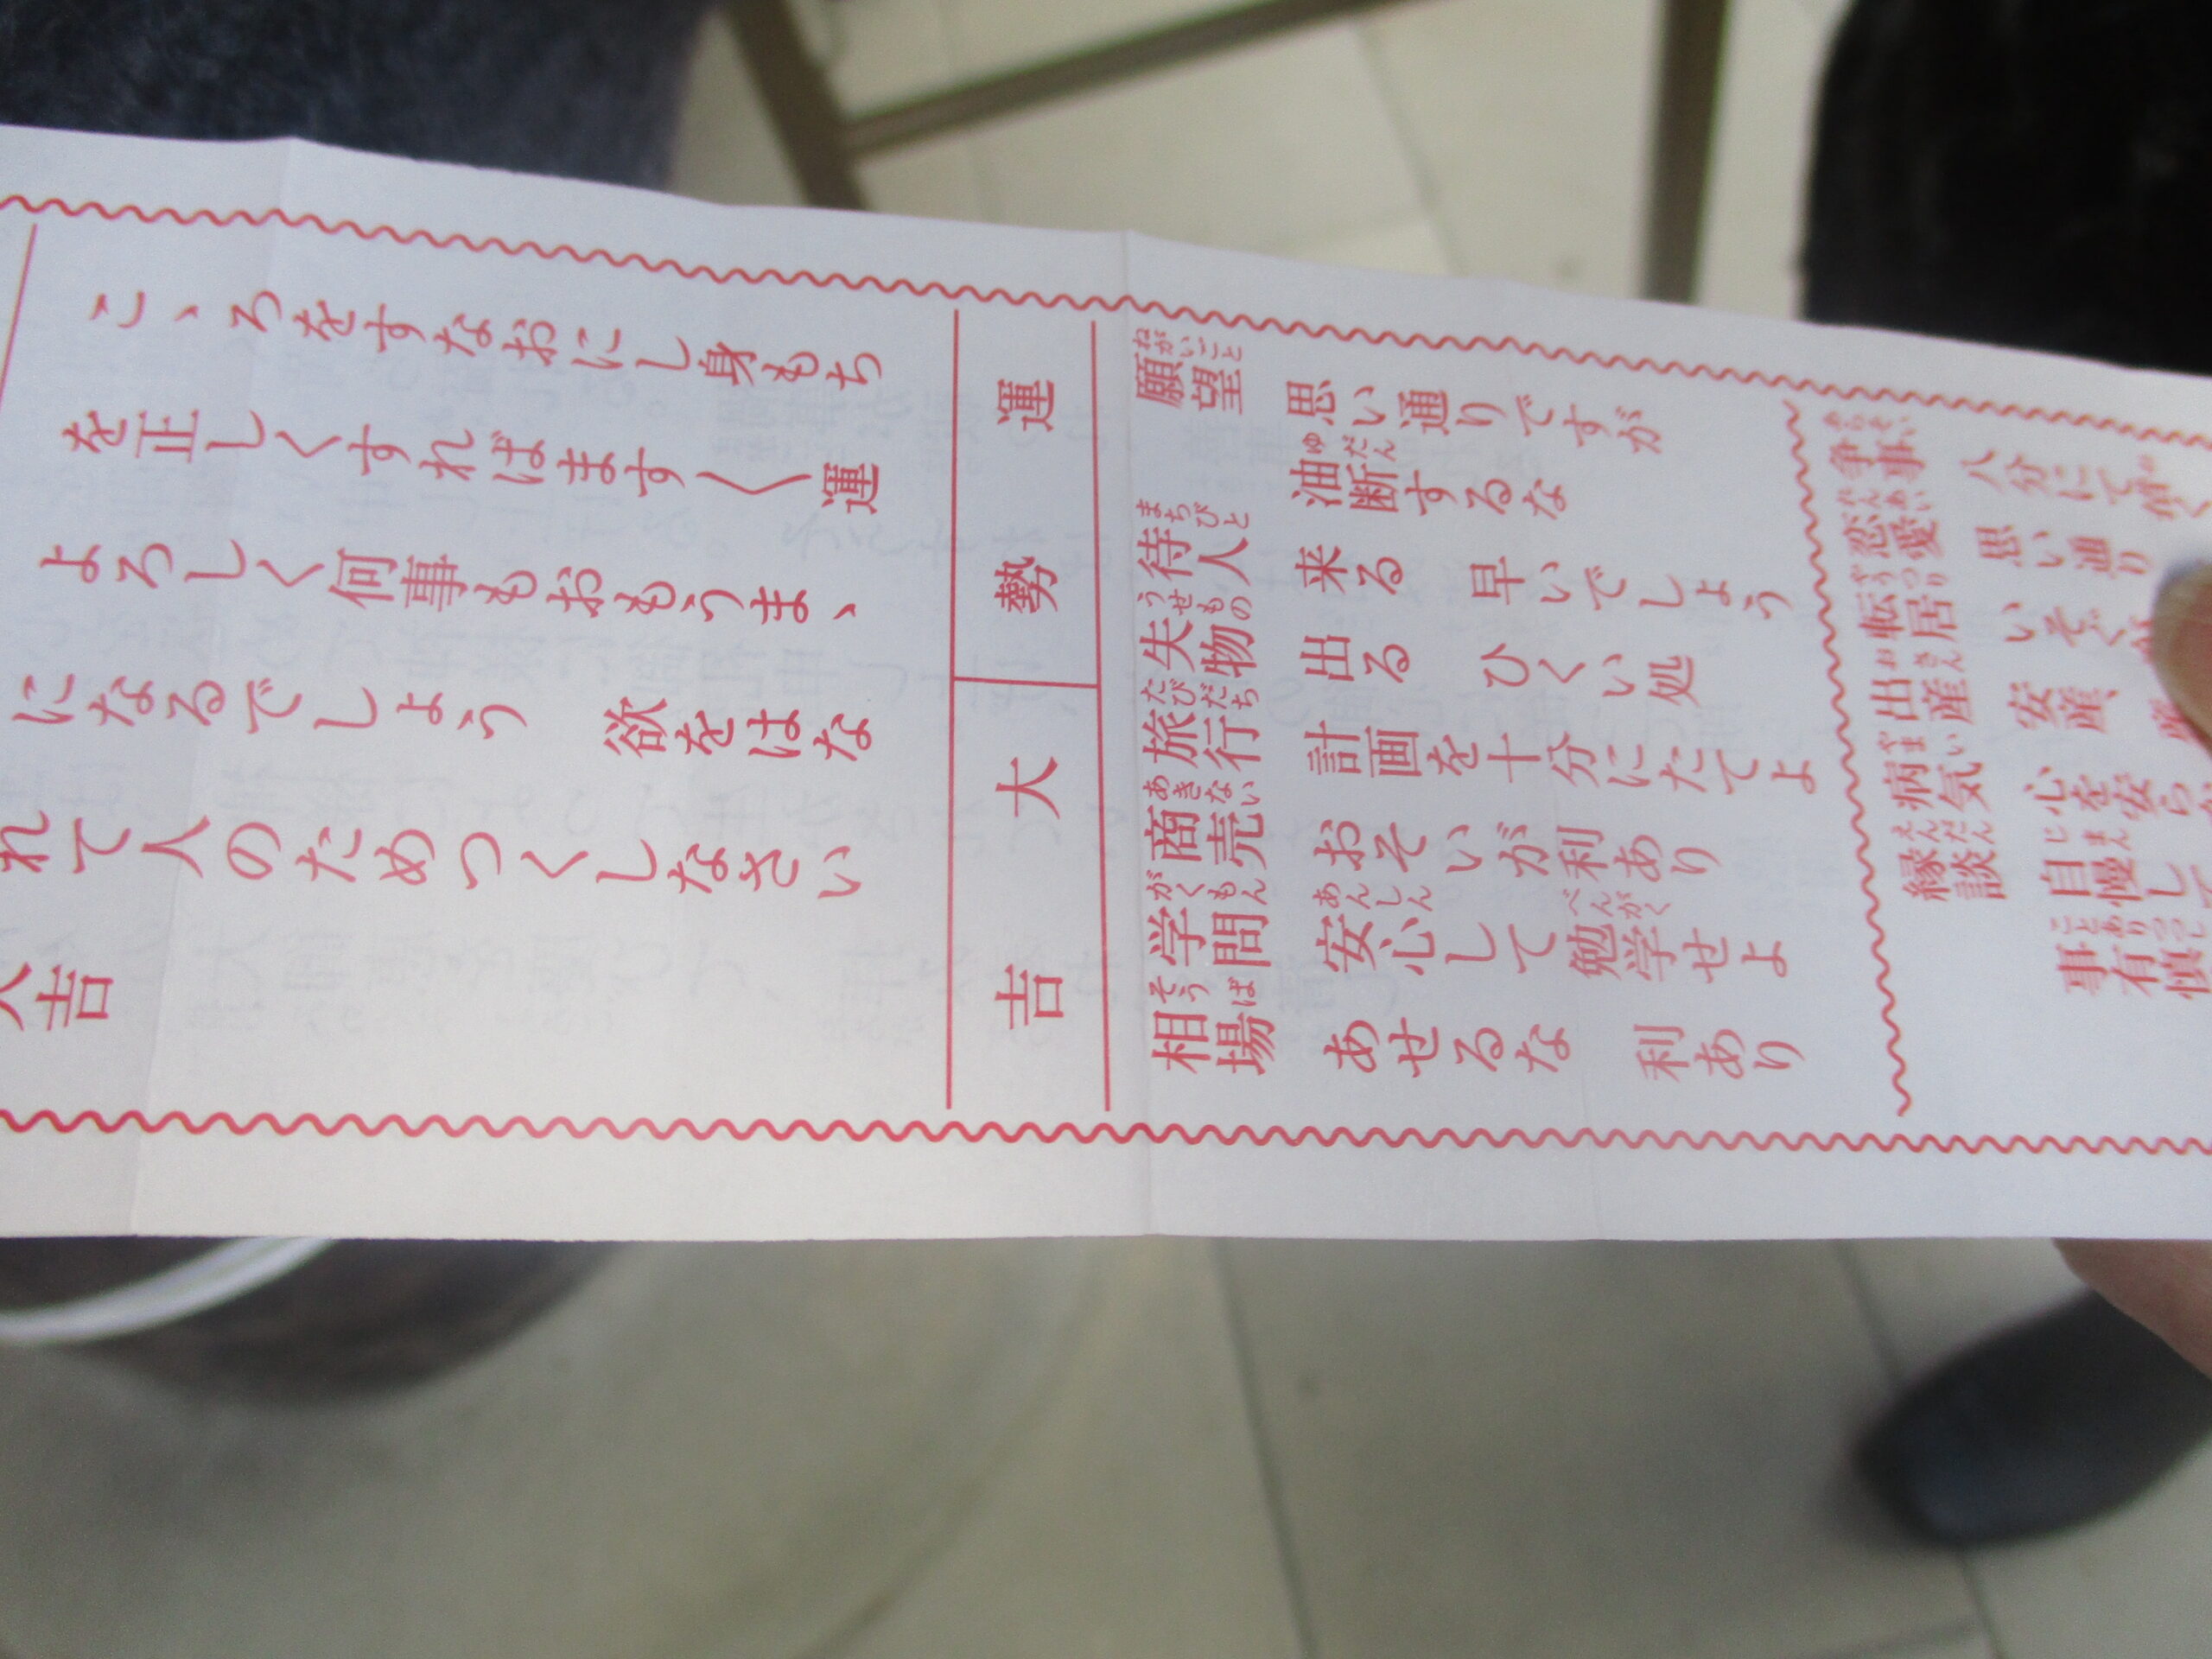 こゝろをすなおにし身もち
を正しくすればます〱運
よろしく何事もおもうまゝ
になるでしょう 欲をはな
れて人のためつくしなさい
吉
運勢 大吉
願望 思い通りですが
油断するな
待人 来る 早いでしょう
失物 出る ひくい処
旅行 計画を十分にたてよ
商売 おそいが利あり
学問 安心して勉学せよ
相場 あせるな 利あり
争事 八分にて
恋愛 思い通り
転居 いそぐ
出産 安産、産
病気 心を安ら
縁談 自慢して
事有 慎